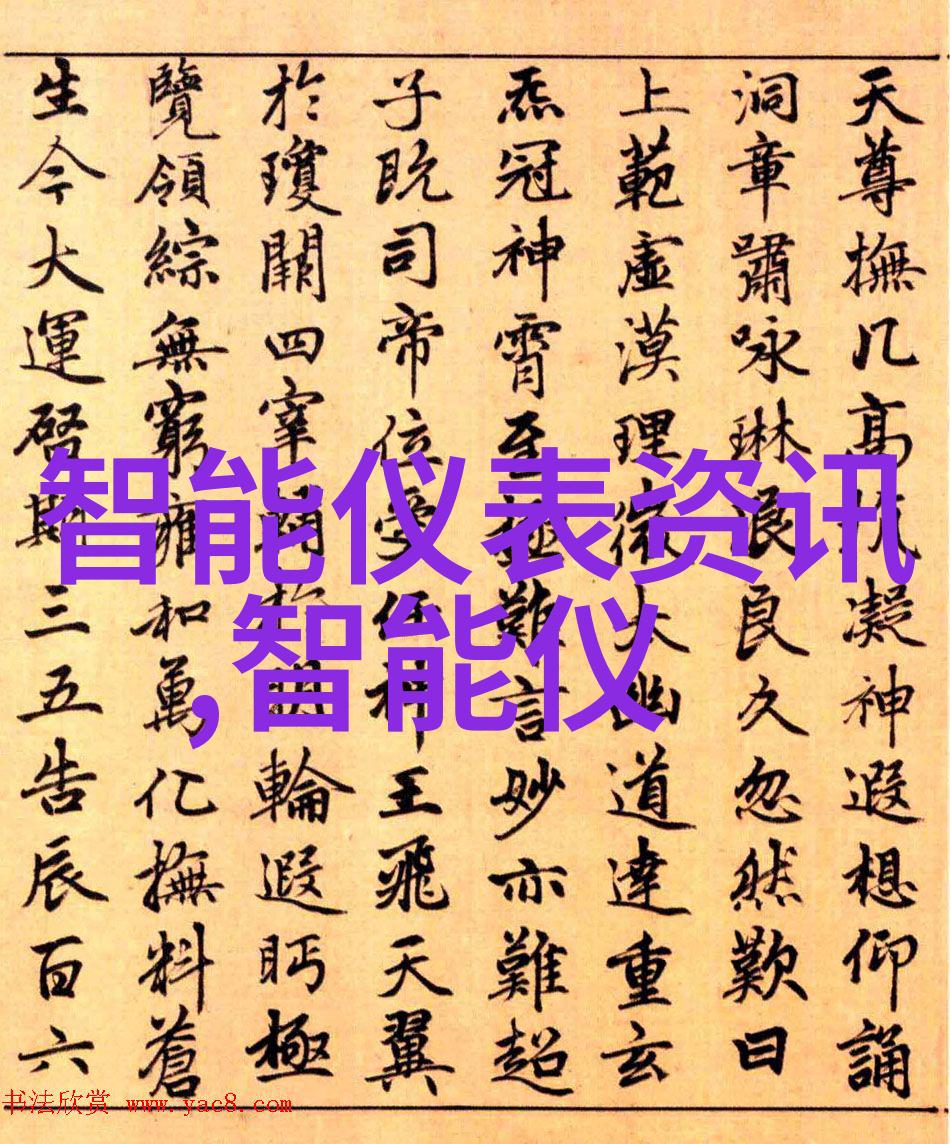 天尊撫几高抗凝神遐想仰誦
洞章嘯咏琳琅良久忽然歎曰
上範虛漠理微大幽道達重玄
炁冠神霄至極難言妙亦難超
子既司帝位受任王飛天翼
於瓊闕四宰輪遐眄極
覽領綜無窮雍和萬化撫料蒼
生今大運啓期三五告辰百六
智能仪表资讯
,智能仪
书法欣赏 www.yac8.com